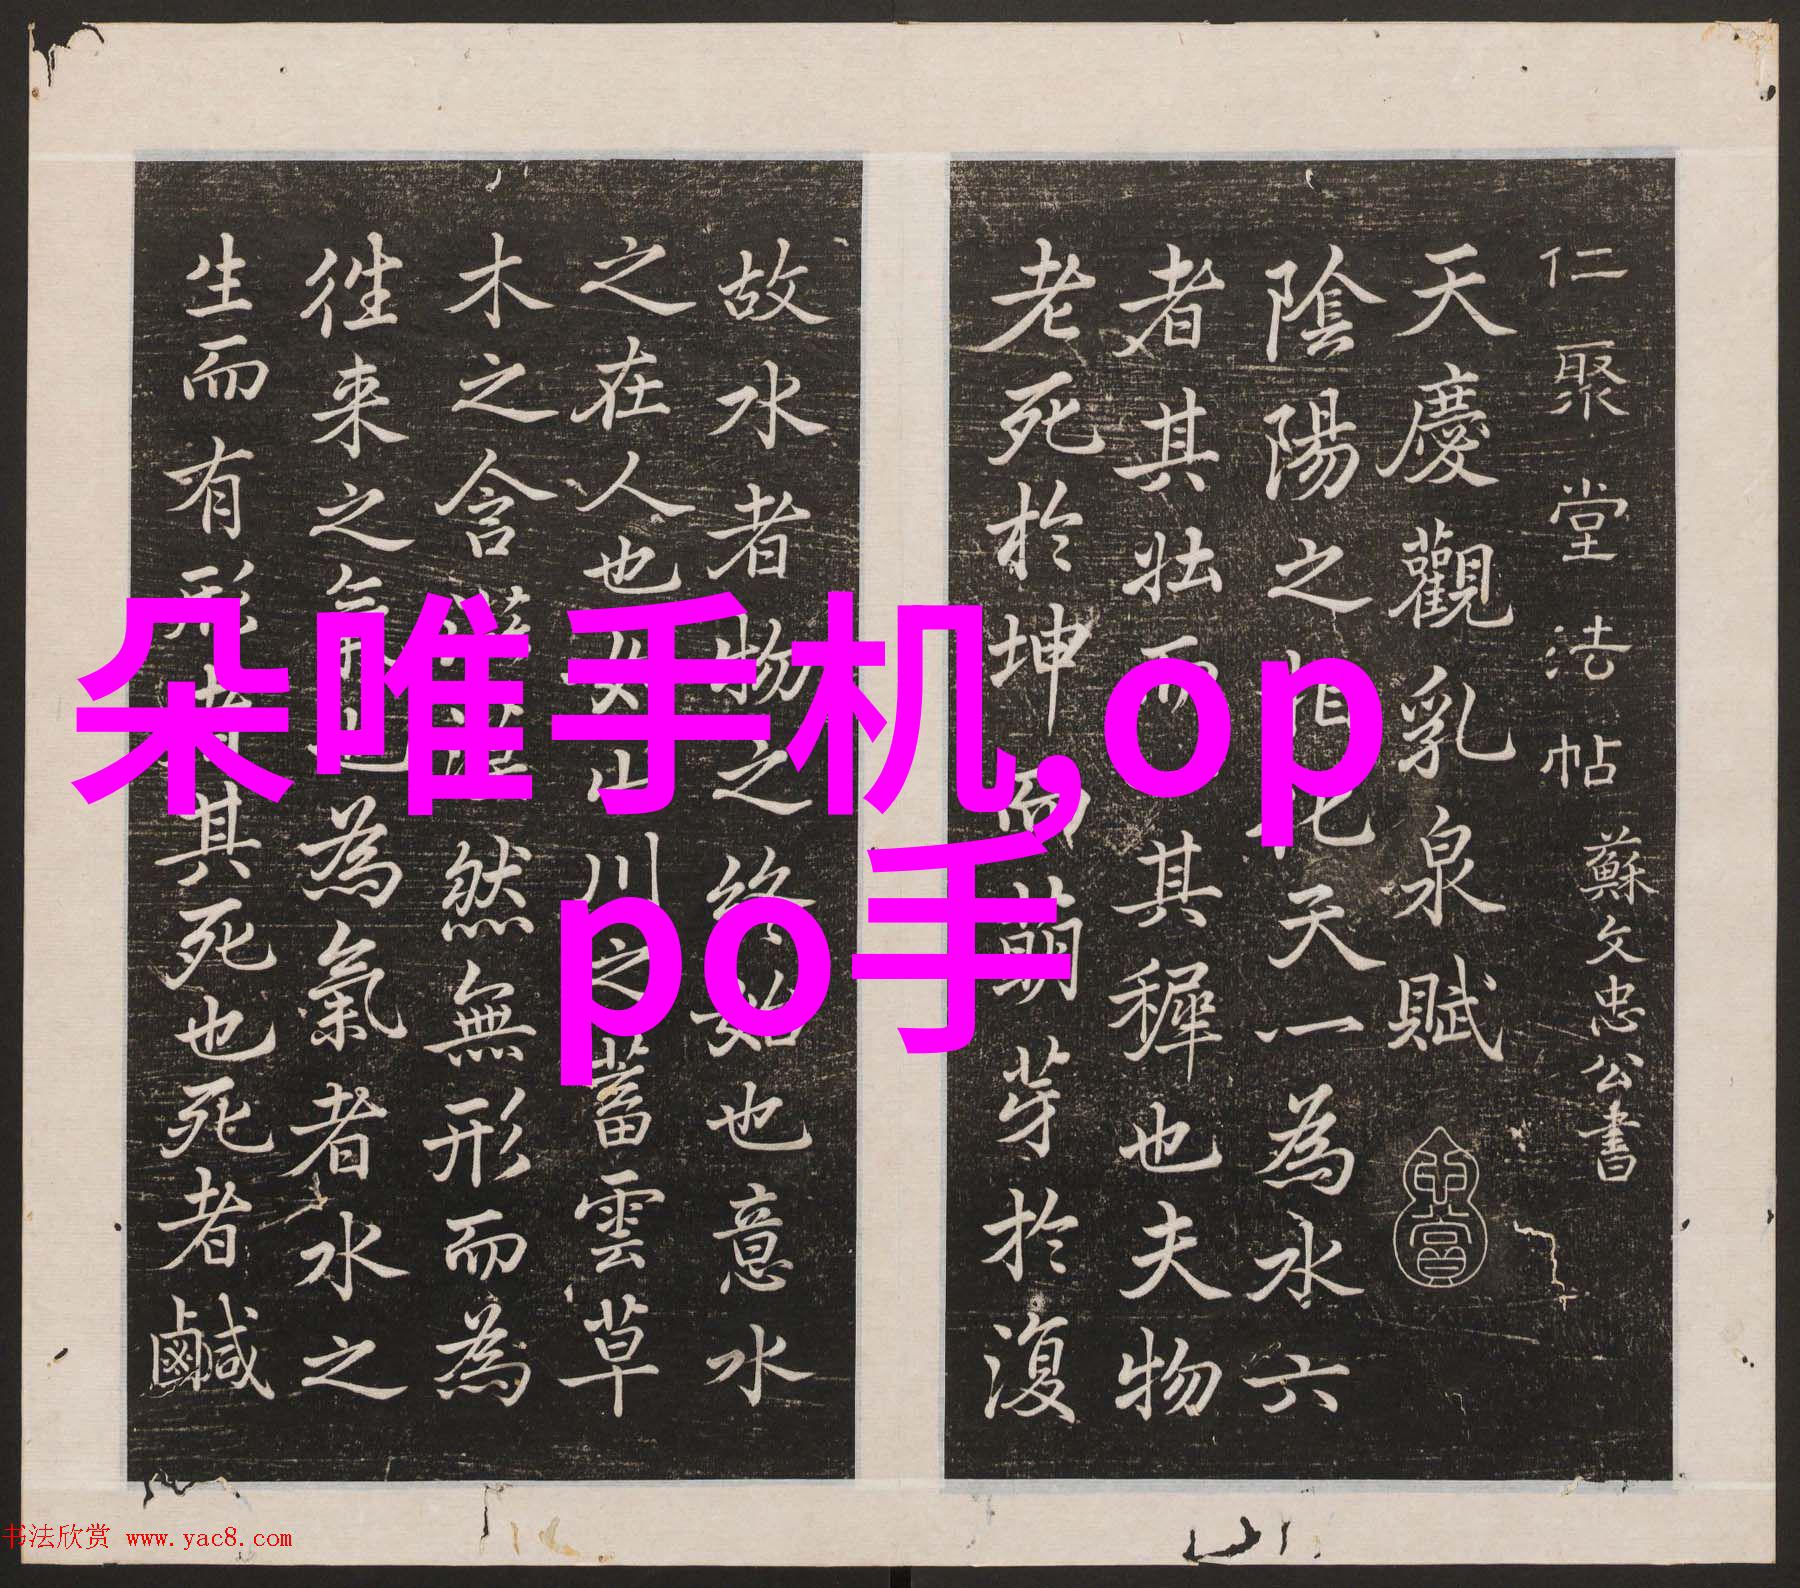 仁聚堂法帖 蘇文忠公書
天慶觀乳泉賦
陰陽之相化天一為水六
者其壯而其穉也夫物
老死於坤而萌芽於復
故水者物之終始也意水
之在人也如山川之蓄雲草
木之含然無形而為
徃来之氣也為氣者水之
生而有形者其死也死者鹹
朵唯手机,op
po手
书法欣赏 www.yac8.com